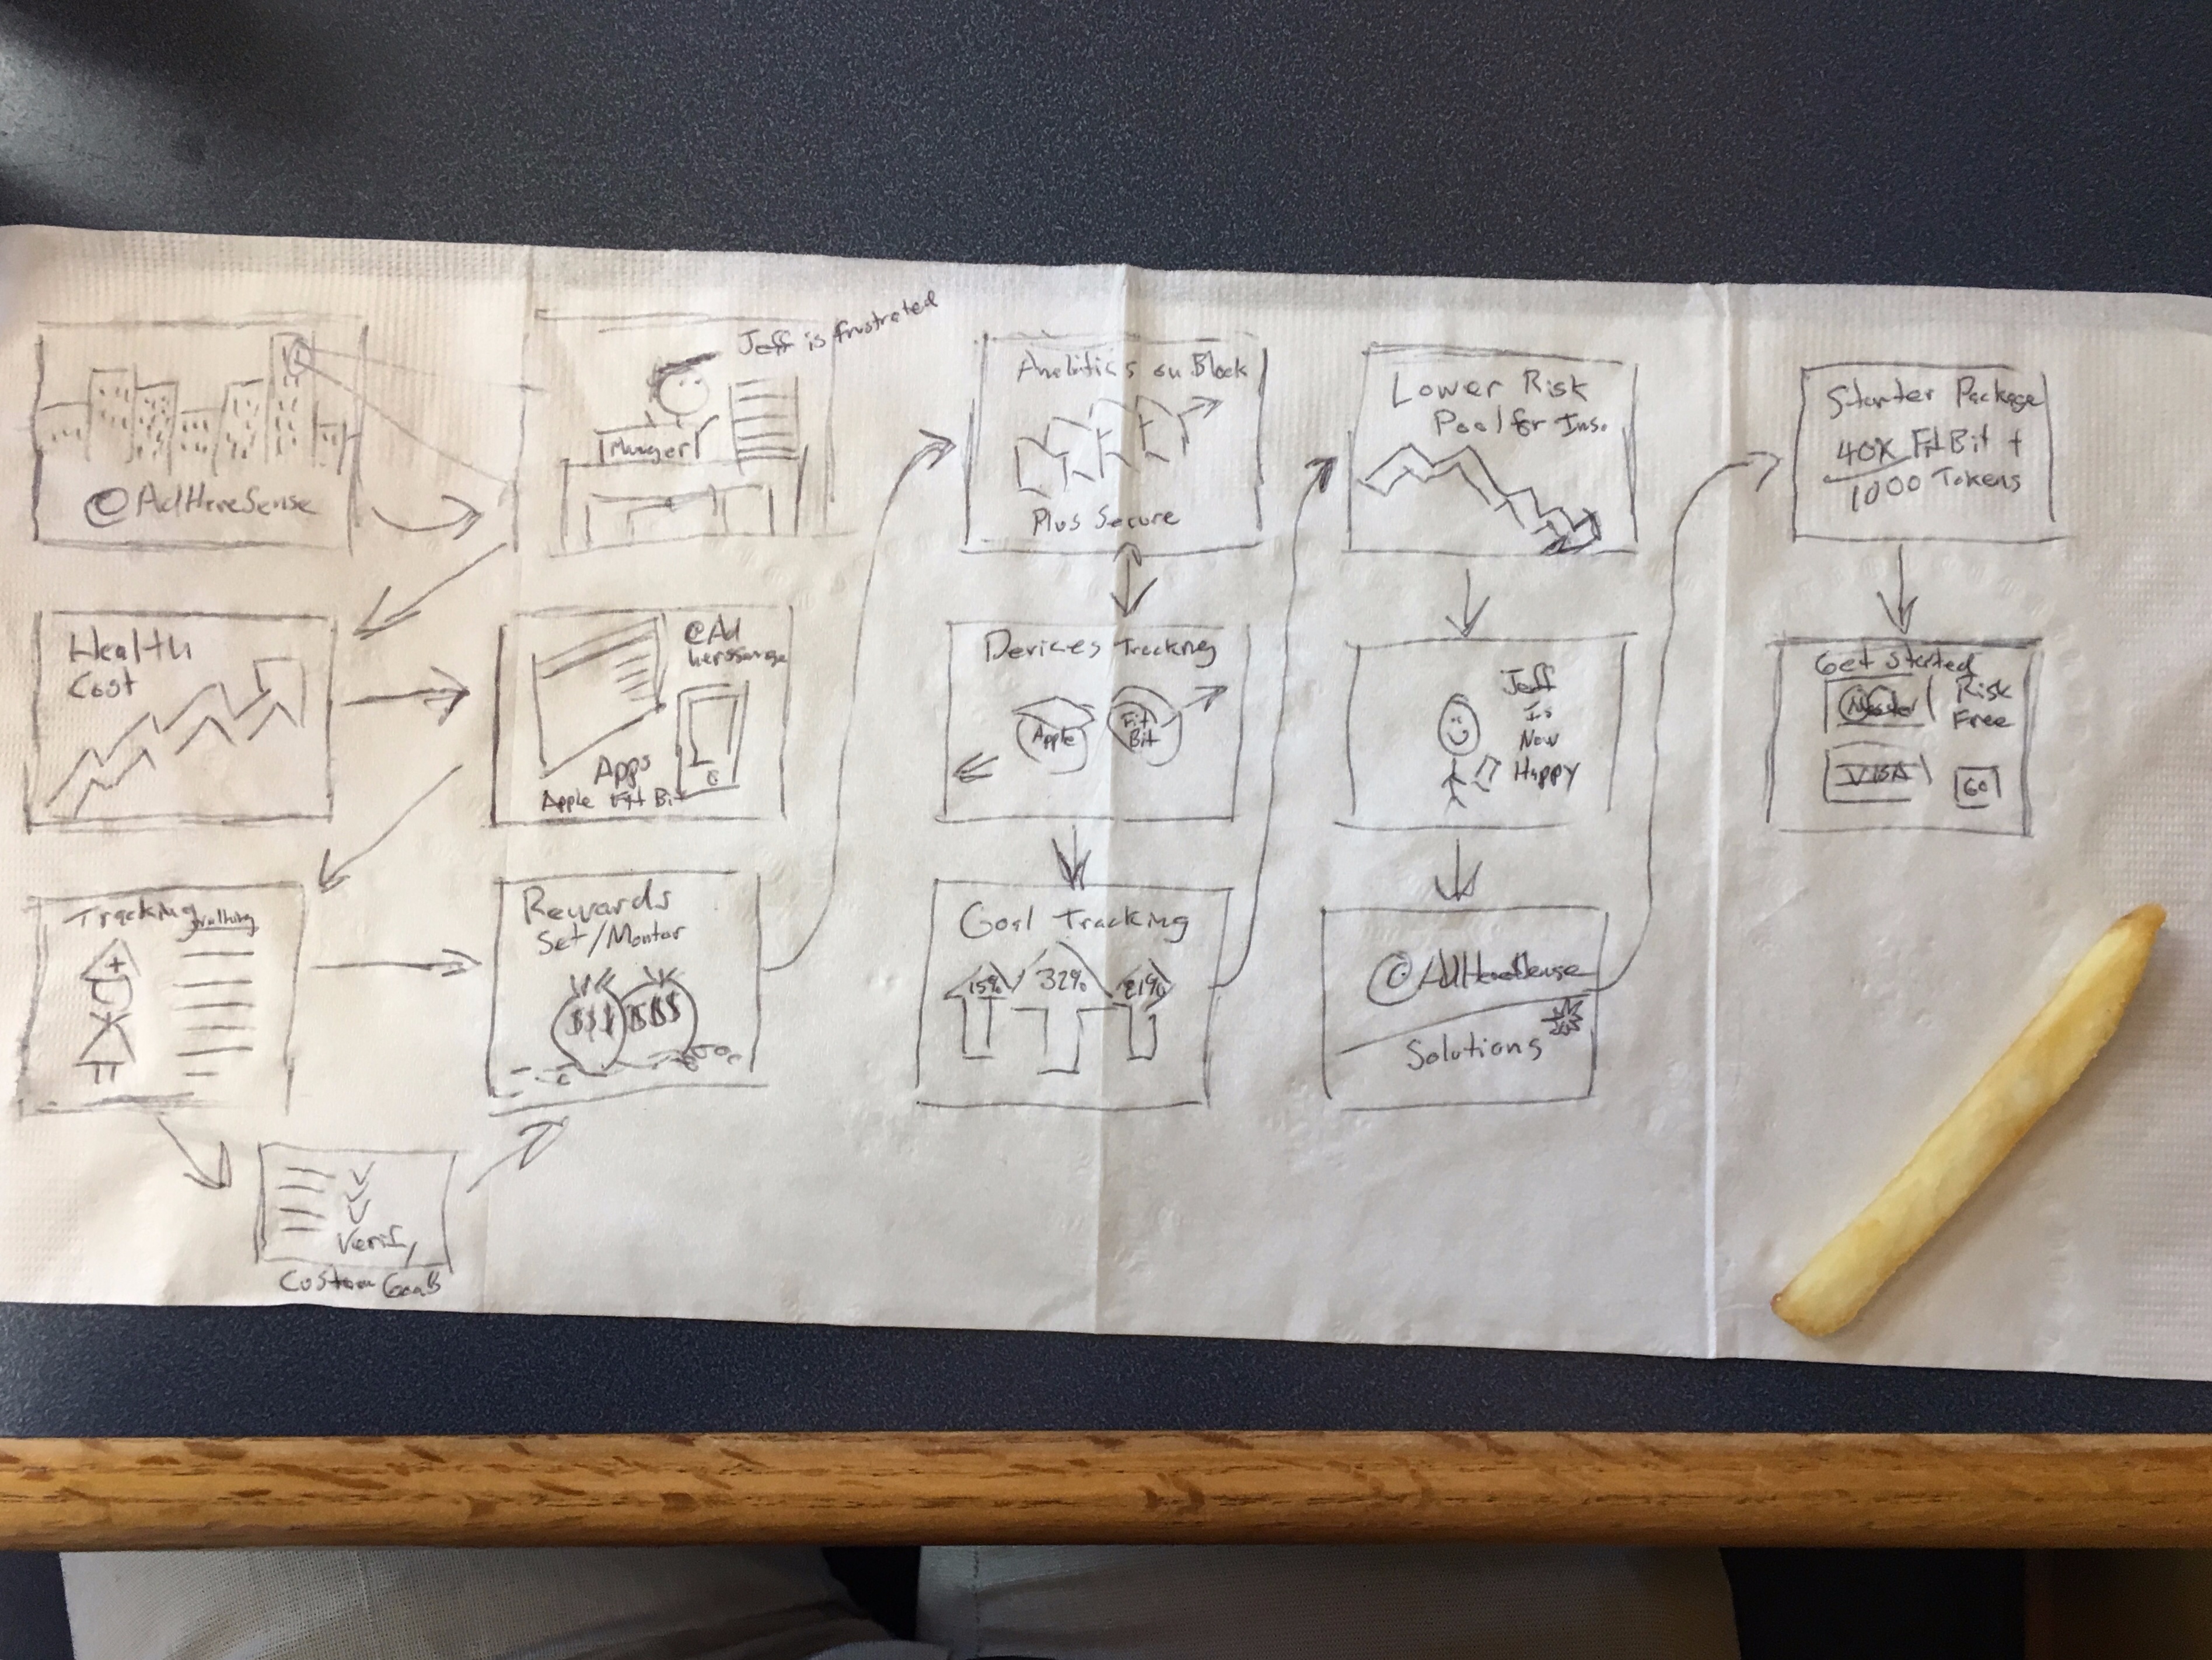 @AdHereSense
Jeff is frustrated
Manger
Health
Cost
@Ad
Apps
Apple Fit Bit
Tracking
Verify
Custom Goals
Rewards
Set/Montor
$$$ $$$
Analitics on Block
Plus Secure
Devices Tracking
Apple
Fit
Bit
Goal Tracking
15% 32% 21%
Lower Risk
Pool for Ins.
Jeff
Is
Now
Happy
@AdHereSense
Solutions
Starter Package
40X FitBit +
1000 Tokens
Get Started
Risk
Free
VISA
GO